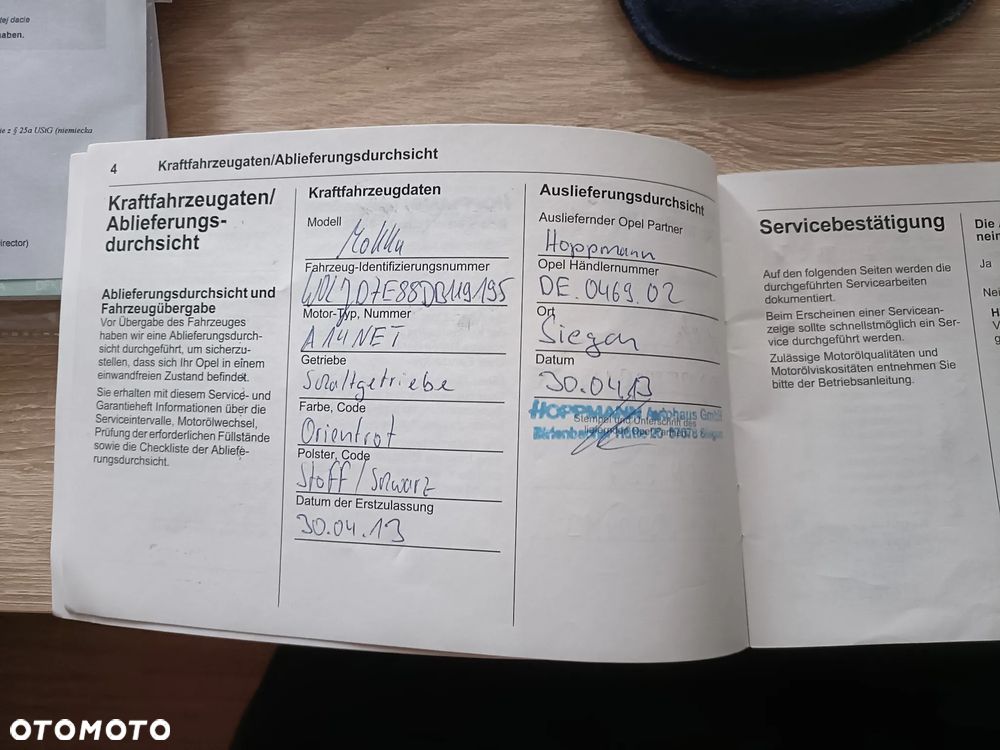 tej dacie
aben.
ie z § 25a UStG (niemiecka
irector)
4 Kraftfahrzeugaten/Ablieferungsdurchsicht
Kraftfahrzeugaten/
Ablieferungs-
durchsicht
Ablieferungsdurchsicht und
Fahrzeugübergabe
Vor Übergabe des Fahrzeuges
haben wir eine Ablieferungsdurch-
sicht durchgeführt, um sicherzu-
stellen, dass sich Ihr Opel in einem
einwandfreien Zustand befindet.
Sie erhalten mit diesem Service- und
Garantieheft Informationen über die
Serviceintervalle, Motorölwechsel,
Prüfung der erforderlichen Füllstände
sowie die Checkliste der Abliefe-
rungsdurchsicht.
Kraftfahrzeugdaten
Modell
Mokka
Fahrzeug-Identifizierungsnummer
W0LJD7E88DB119195
Motor-Typ, Nummer
A14NET
Getriebe
Schaltgetriebe
Farbe, Code
Orientrot
Polster, Code
Stoff / Schwarz
Datum der Erstzulassung
30.04.13
Auslieferungsdurchsicht
Ausliefernder Opel Partner
Hoppmann
Opel Händlernummer
DE.0469.02
Ort
Siegen
Datum
30.04.13
HOPPMANN Autohaus GmbH
Stempel und Unterschrift des
Servicebestätigung
Auf den folgenden Seiten werden die
durchgeführten Servicearbeiten
dokumentiert.
Beim Erscheinen einer Servicean-
zeige sollte schnellstmöglich ein Ser-
vice durchgeführt werden.
Zulässige Motorölqualitäten und
Motorölviskositäten entnehmen Sie
bitte der Betriebsanleitung.
Die
nein
Ja
Nei
OTOMOTO